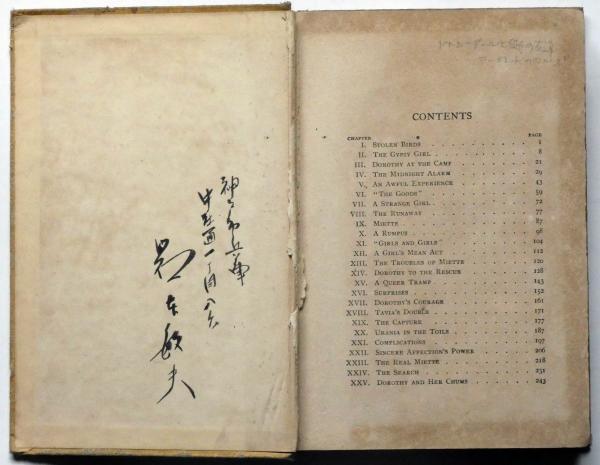 神戸市兵庫
中道通一丁目八六
東敏夫
CONTENTS
CHAPTER PAGE
I. STOLEN BIRDS 1
II. THE GYPSY GIRL 8
III. DOROTHY AT THE CAMP 21
IV. THE MIDNIGHT ALARM 29
V. AN AWFUL EXPERIENCE 43
VI. "THE GOODS" 59
VII. A STRANGE GIRL 72
VIII. THE RUNAWAY 77
IX. MIETTE 87
X. A RUMPUS 98
XI. "GIRLS AND GIRLS" 104
XII. A GIRL'S MEAN ACT 112
XIII. THE TROUBLES OF MIETTE 120
XIV. DOROTHY TO THE RESCUE 128
XV. A QUEER TRAMP 143
XVI. SURPRISES 152
XVII. DOROTHY'S COURAGE 161
XVIII. TAVIA'S DOUBLE 171
XIX. THE CAPTURE 177
XX. URANIA IN THE TOILS 187
XXI. COMPLICATIONS 197
XXII. SINCERE AFFECTION'S POWER 206
XXIII. THE REAL MIETTE 218
XXIV. THE SEARCH 231
XXV. DOROTHY AND HER CHUMS 243